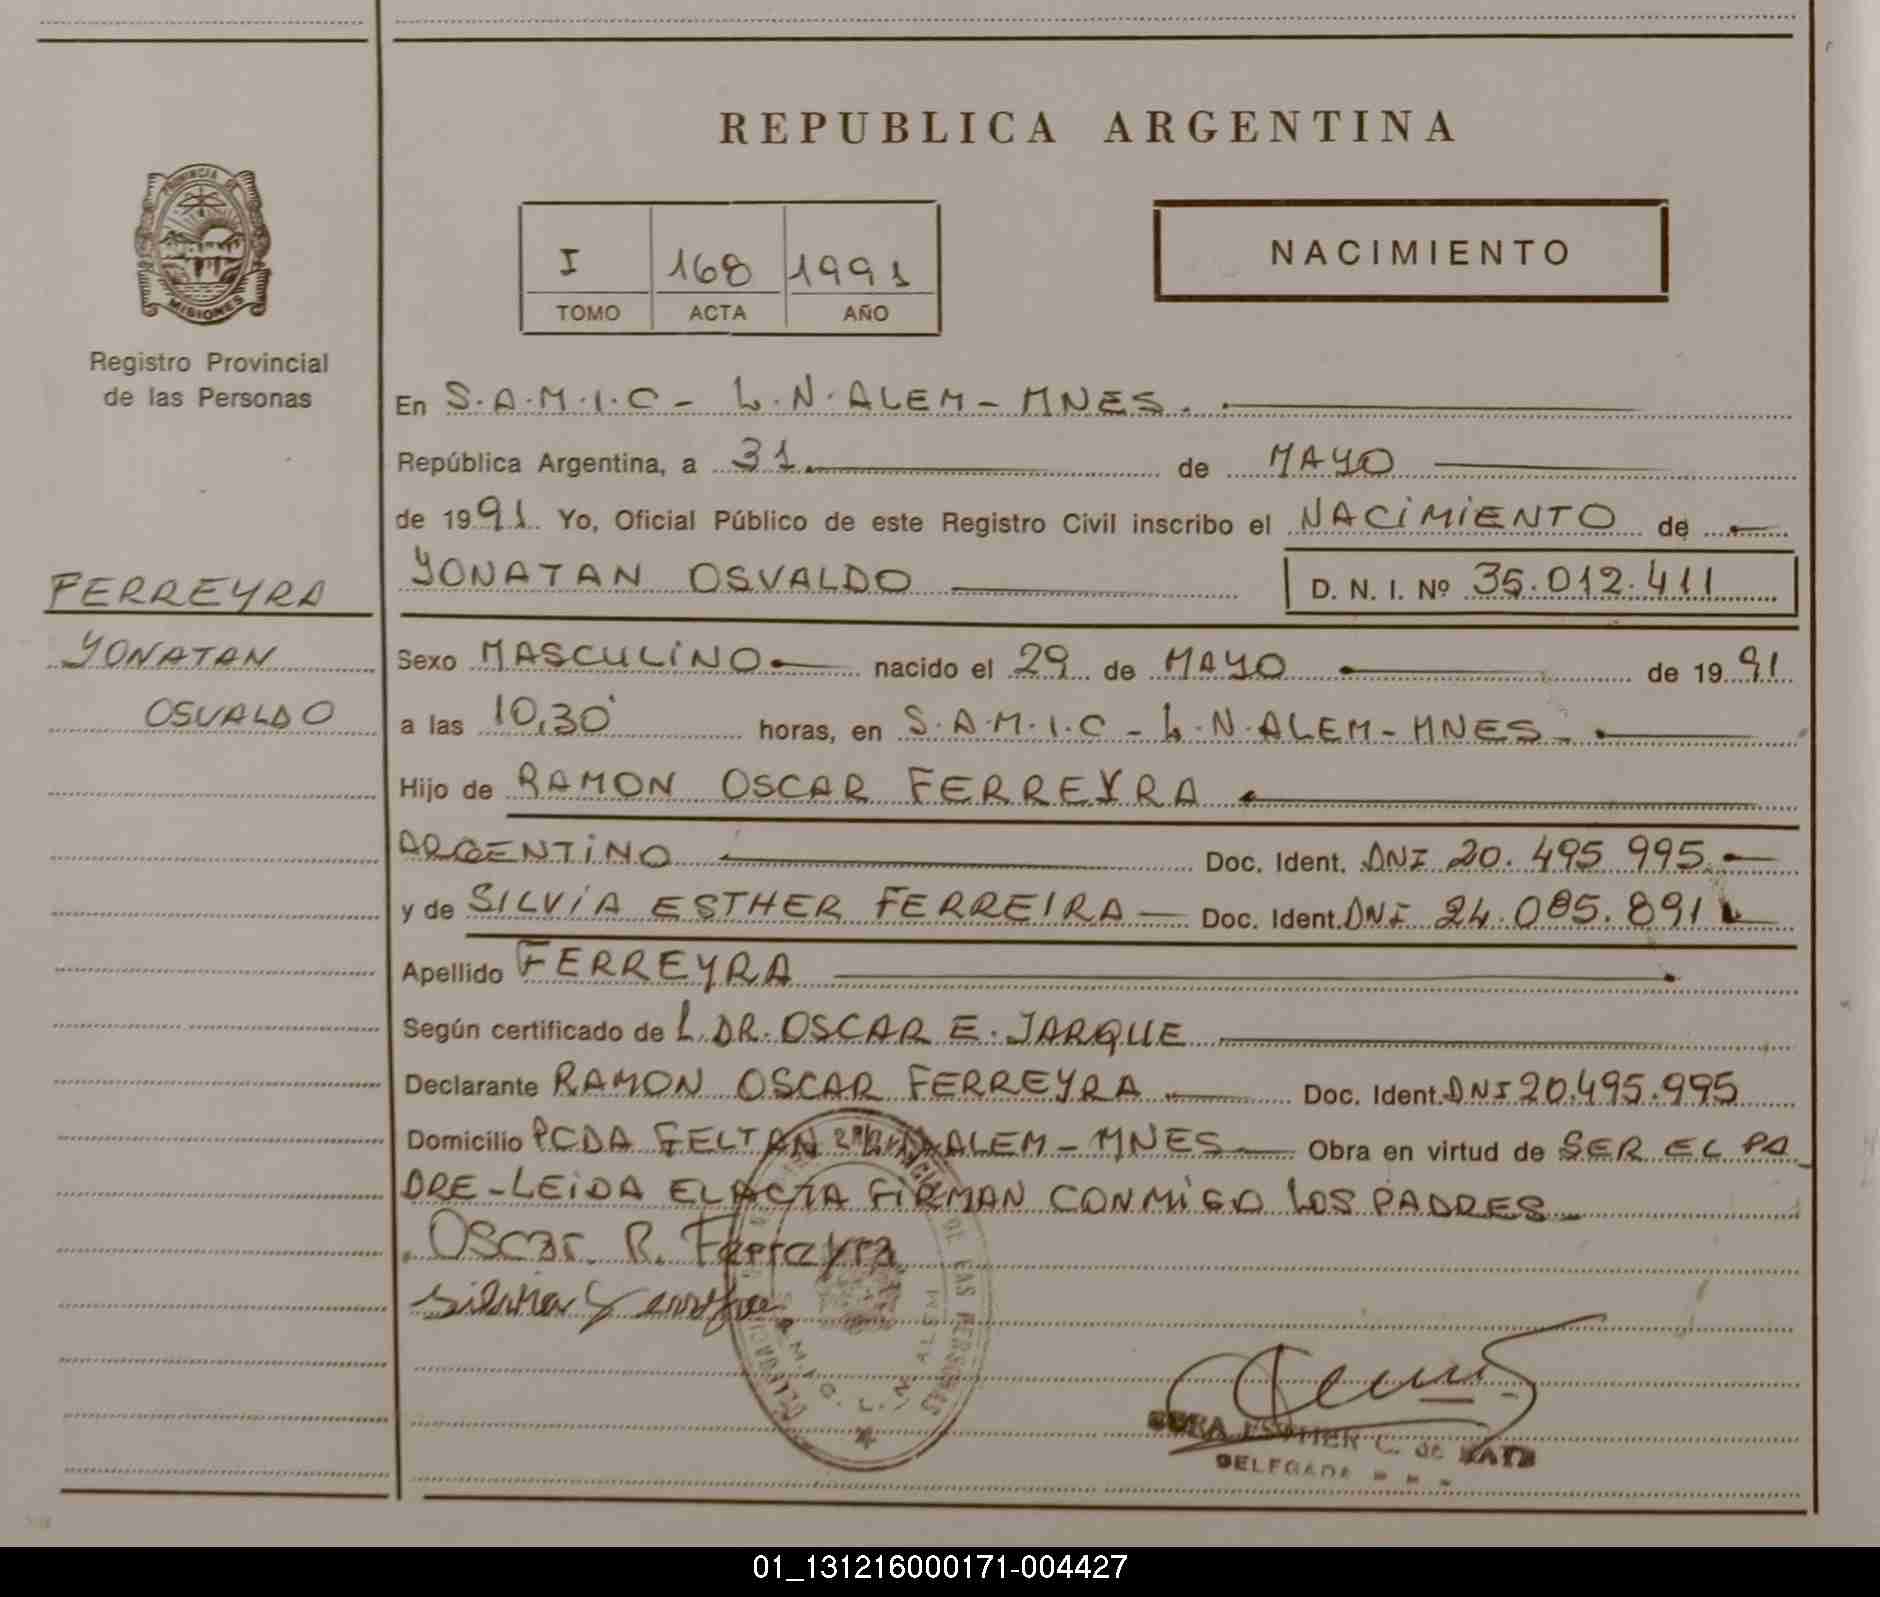 REPUBLICA ARGENTINA
PROVINCIA DE
MISIONES
Registro Provincial
de las Personas
I 168 1991
TOMO ACTA AÑO
NACIMIENTO
En S.A.M.I.C - L.N.ALEM - MNES.
República Argentina, a 31 de MAYO
de 1991. Yo, Oficial Público de este Registro Civil inscribo el NACIMIENTO de
YONATAN OSVALDO D. N. I. Nº 35.012.411
FERREYRA
YONATAN
OSVALDO
Sexo MASCULINO nacido el 29 de MAYO de 1991
a las 10,30 horas, en S.A.M.I.C - L.N.ALEM - MNES -
Hijo de RAMON OSCAR FERREYRA
ARGENTINO Doc. Ident. DNI 20.495 995.
y de SILVIA ESTHER FERREIRA - Doc. Ident. DNI 24.085.891
Apellido FERREYRA
Según certificado de L.DR.OSCAR E. JARQUE
Declarante RAMON OSCAR FERREYRA Doc. Ident. DNI 20.495.995
Domicilio PCDA GELTAN ALEM - MNES - Obra en virtud de SER EL PA
DRE - LEIDA EL ACTA FIRMAN CONMIGO LOS PADRES -
Oscar R. Ferreyra
Silvia
DE LAS PERSONAS
S.A.M.I.C. L.N. ALEM
ESTHER C. de
DELEGADA
01_131216000171-004427